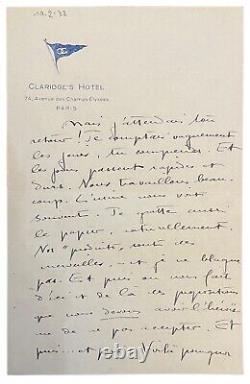 19-2-33
CLARIDGE'S HOTEL
74, Avenue des Champs Elysées
PARIS
Mais j'attendais ton
retour! Je comptais vaguement
les jours, tu comprends. Et
les jours passent rapides et
durs. Nous travaillons beau-
coup. L'usine nous voit
souvent. Je quitte aussi
le papier, naturellement.
Nos "produits" sont des
merveilles, et je ne blague
pas. Et puis on nous fait
d'ici et de là ces propositions
que nous devons avoir l'héroïs-
me de ne pas accepter. Et
puis... et puis. Voilà pourquoi
© westhuds.com